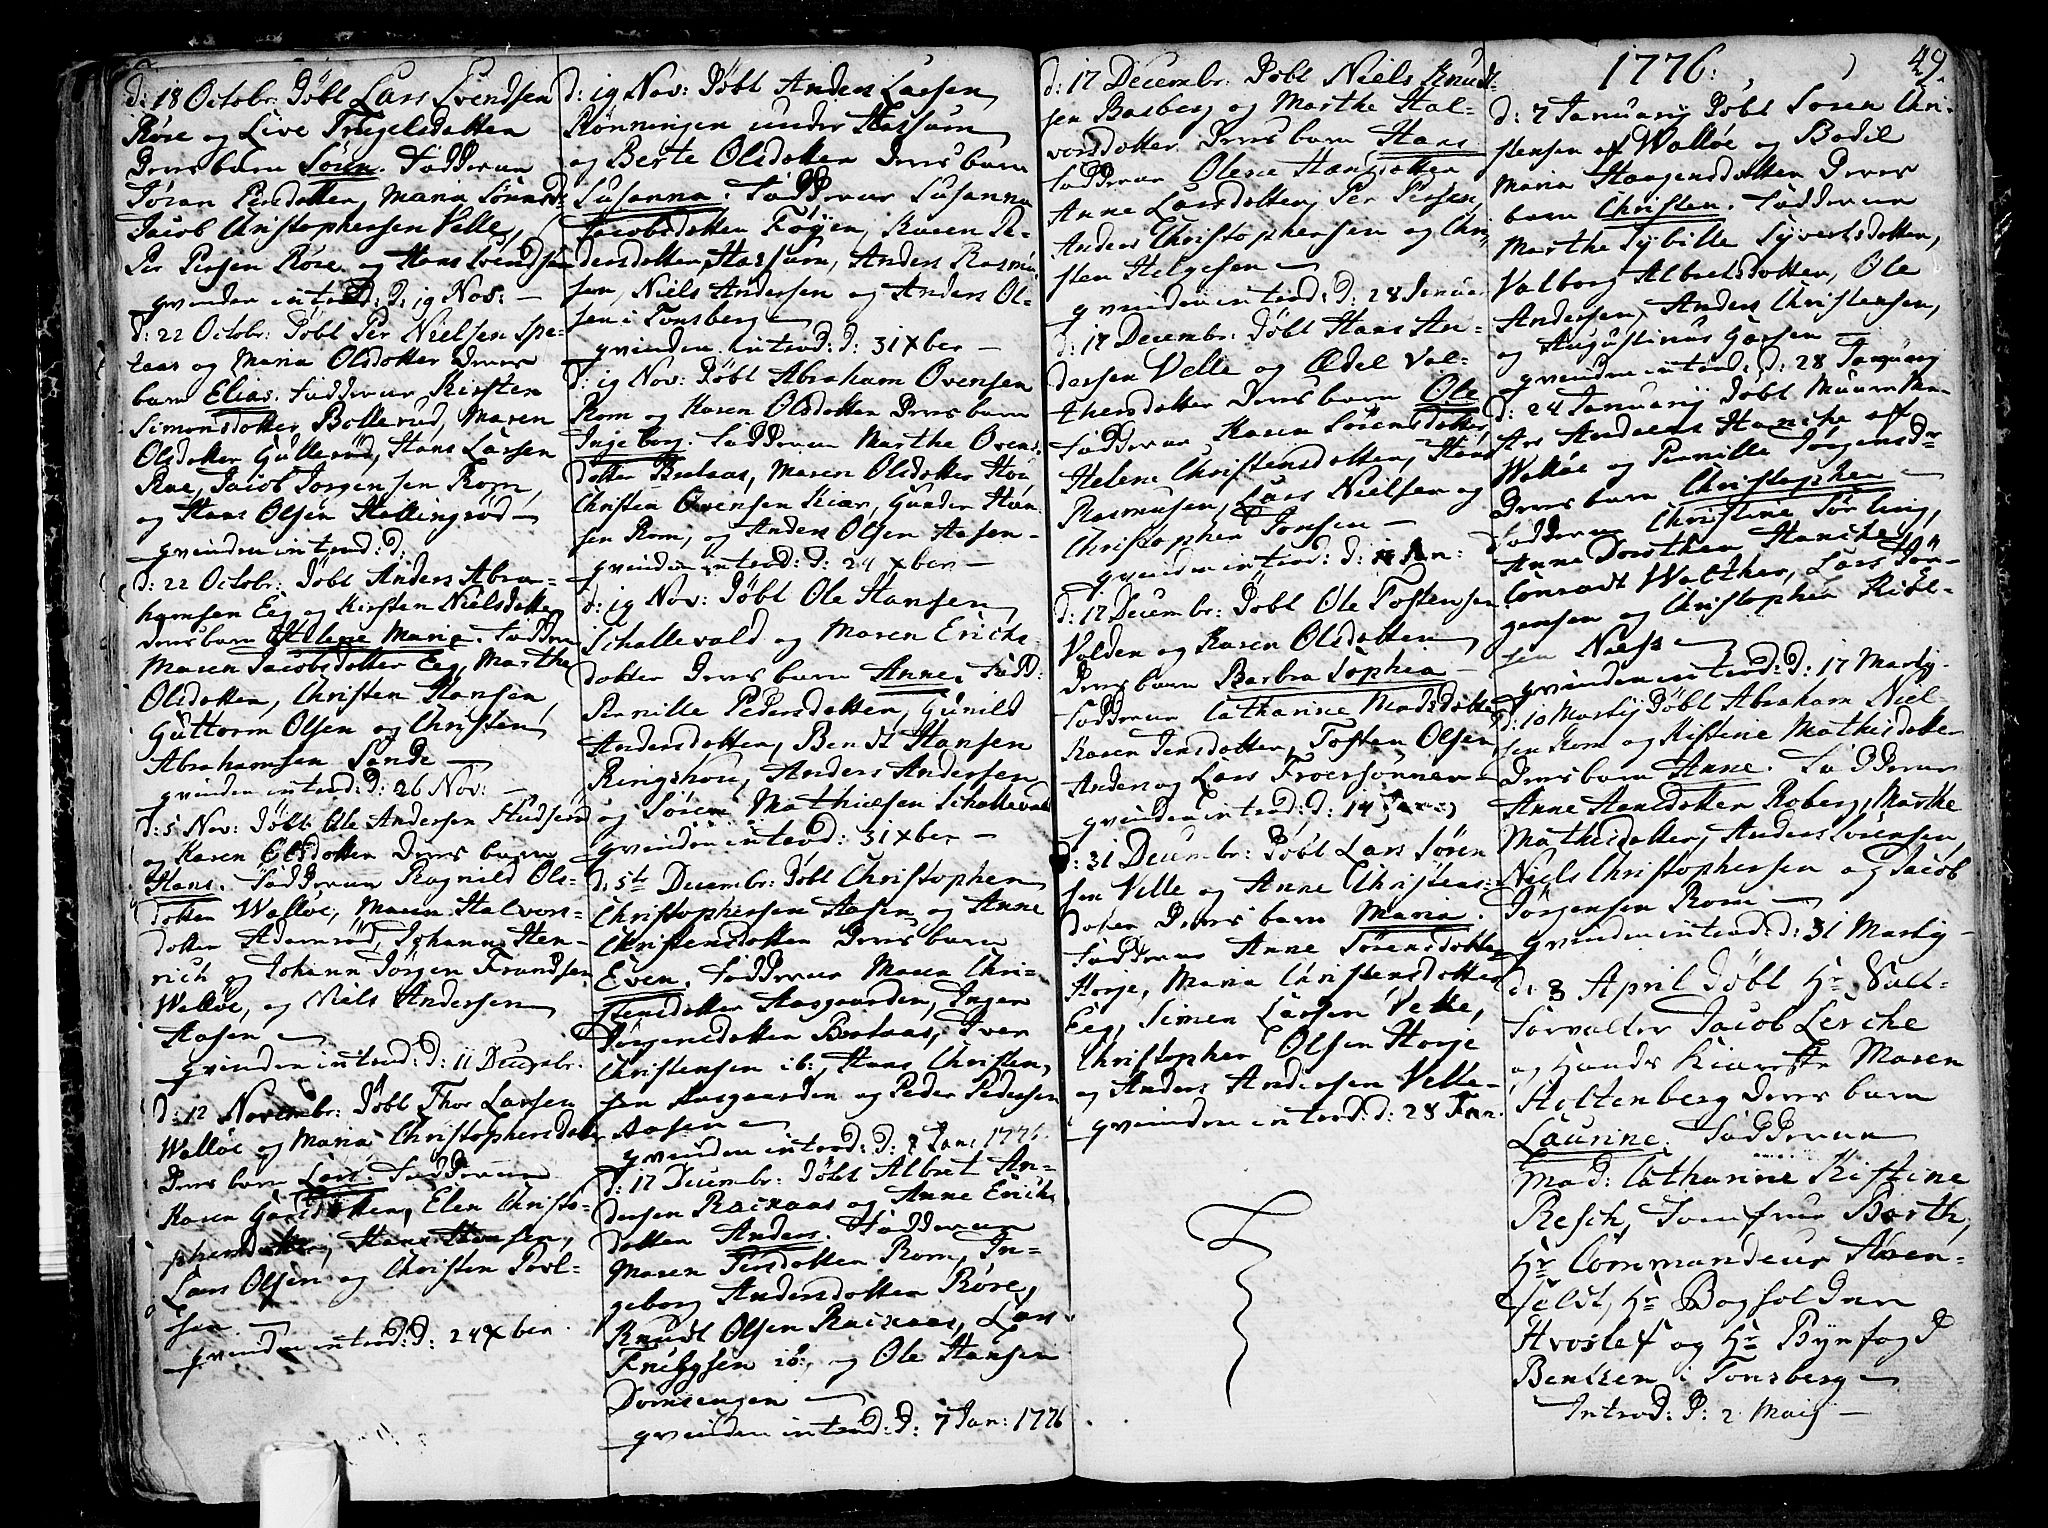 d: 18 Octobr: Døbt Lars Svendsen
Røre og Live Trugelsdatter
Deres barn Søren. Fadderne
Jøran Persdatter, Maria Sørensd:
Jacob Christophersen Velle,
Per Persen Røre og Hans Svendsen
qvinden introd: d: 19 Nov: —
d: 22 Octobr: Døbt Per Nielsen Spe-
raas og Maria Olsdotter deres
barn Elias. Fadderne Kirsten
Simonsdotter Bollerud, Maren
Olsdotter Gullerød, Hans Larsen
Rae, Jacob Jørgensen Rom,
og Hans Olsen Hallingrød —
qvinden introd: d:
d: 22 Octobr: Døbt Anders Abra-
hamsen Eeg og Kirsten Nielsdotter
deres barn Helene Maria. Fadder:
Maren Jacobsdotter Eeg, Marthe
Olsdotter, Christen Hansen,
Guttorm Olsen og Christen
Abrahamsen Sande —
qvinden introd: d: 26 Nov: —
d: 5 Nov: Døbt Ole Andersen
og Karen Olsdotter deres barn
Hans. Fadderne Ragnild Ols-
dotter Walløe, Maren Halvors-
dotter Adamrød, Johann Hen-
rich og Johann Jørgen Frandsen
Walløe, og Niels Andersen
Aasen —
qvinden introd: d: 11 Decembr:
d: 12 Novembr: Døbt Thor Larsen
Walløe og Maria Christophersdotter
Deres barn Lars. Fadderne
Karen Dotter, Elen Christo-
phersdotter, Hans Hansen,
Lars Olsen og Christen Povel-
sen —
qvinden introd: d: 24 Xber.
d: 19 Nov: Døbt Anders Larsen
Rønningen under Hassum
og Berte Olsdotter Deres barn
Susanna. Fadderne Susanna
Jacobsdotter Føyen, Karen Pe-
dersdotter Hassum, Anders Rasmu
sen, Niels Andersen og Anders Ol-
sen i Tonsberg —
qvinden introd: d: 31 Xber —
d: 19 Nov: Døbt Abraham Ovensen
Rom og Karen Olsdotter Deres barn
Ingeborg. Fadderne Marthe Ovens-
dotter Borlaas, Maren Olsdotter
Christen Ovensen Kiær, Gunder Han-
sen Rom, og Anders Olsen Aasen —
qvinden introd: d: 24 Xber —
d: 19 Nov: Døbt Ole Hansen
Schallevald og Maren Erichs-
dotter Deres barn Anne. Fadd:
Pernille Pedersdotter, Gunild
Andersdotter, Bendt Hansen
Ringshou, Anders Andersen
og Søren Mathiesen Schallevald
qvinden introd: 31 Xber —
d: 5te Decembr: Døbt Christopher
Christophersen Aasen og Anne
Christensdotter Deres barn
Even. Fadderne Maren Chri-
stensdotter Aasgaarden, Inger
Jørgensdotter Borlaas, Iver
Christensen ib:, Hans Christen-
sen Aasgaarden og Peder Pedersen
Aasen —
qvinden introd: d: 7 Jan: 1776.
d: 17 Decembr: Døbt Albret An-
dersen Racxaas og Anne Erichs
dotter Anders. Fadderne
Maren Persdotter Rom, In-
geborg Andersdotter Røre,
Knudt Olsen Racxaas, Lars
ib:, og Ole Hansen
Dornsengen —
qvinden introd: d: 7 Jan: 1776
d: 17 Decembr: Døbt Niels Knudt-
sen Basberg og Marthe Hal-
vorsdotter Deres barn Hans
Fadderne Olea Hansdotter
Anne Larsdotter, Per Persen,
Anders Christophersen og Chri
sten Helgesen —
qvinden introd: d: 28 Januar
d: 17 Decembr: Døbt Hans An-
dersen Velle og Ædel Val-
thersdotter Deres barn Ole
Fadderne Karen Sørensdotter,
Helene Christensdotter, Hans
Rasmusen, Lars Nielsen og
Christopher Jonsen —
qvinden introd: d: Jan:
d: 17 Decembr: Døbt Ole Tostensen
Volden og Karen Olsdotter
Deres barn Barbra Sophia —
Fadderne Catharine Madsdotter
Karen Jensdotter, Tosten Olsen
Anders og Lars Iversønner —
qvinden introd: d: 14 Jan:
d: 31 Decembr: Døbt Lars Søren
sen Velle og Anne Christens-
doter Deres barn Maria.
Fadderne Anne Sørensdotter
Horje, Maria Christensdotter
Eeg, Simen Larsen Velle,
Christopher Olsen Horje
og Anders Andersen Velle —
qvinden introd: d: 28 Jan:
1776.
49.
d: 7 Januarij Døbt Søren Chri-
stensen af Walløe og Bodil
Maria Haagensdotter Deres
barn Christen. Fadderne
Marthe Sybille Syvertsdotter,
Valborg Albretsdotter, Ole
Andersen, Anders Christensen,
og Augustinus Larsen
qvinden introd: d: 28 Januarij
d: 24 Januarij Døbt Muurme-
ster Andreas Haniche af
Walløe og Pernille Jørgensdr
Deres barn Christopher —
Fadderne Christine Sørling,
Anne Dorothea Haniche,
Conradt Walther, Lars Jør-
gensen og Christopher
sen Næss —
qvinden introd: d: 17 Martij.
d: 10 Martij Døbt Abraham Niel-
sen Rom og Kistine Mathisdotter
Deres barn Anne. Fadderne
Anne Hansdotter Roberg, Marthe
Mathisdotter, Anders Sørensen,
Niels Christophersen og Jacob
Jørgensen Rom —
qvinden introd: d: 31 Martij —
d: 8 April Døbt Hr Salt-
forvalter Jacob Lerche
og Hands Kiæreste Maren
Holtenberg Deres barn
Laurine. Fadderne
Mad: Catharine Kistine
Resch, Jomfrue Barth,
Hr Commandeur
feldt, Hr Bogholder
Hvoslef og Hr Byefogd
Bentzen i Tonsberg —
Introd: d: 2 Maij —